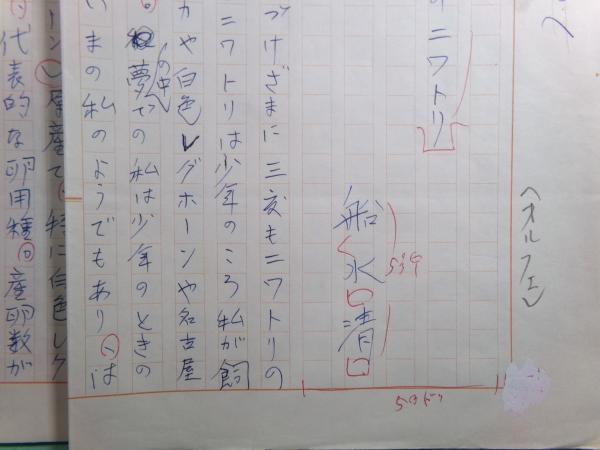 《オルフェ》
のニワトリ
船水清
づけざまに三度もニワトリの
ニワトリは少年のころ私が飼
カや白色レグホーンや名古屋
。夢の中での私は少年のときの
いまの私のようでもあり、は
原産で、特に白色レグ
代表的な卵用種。産卵数が